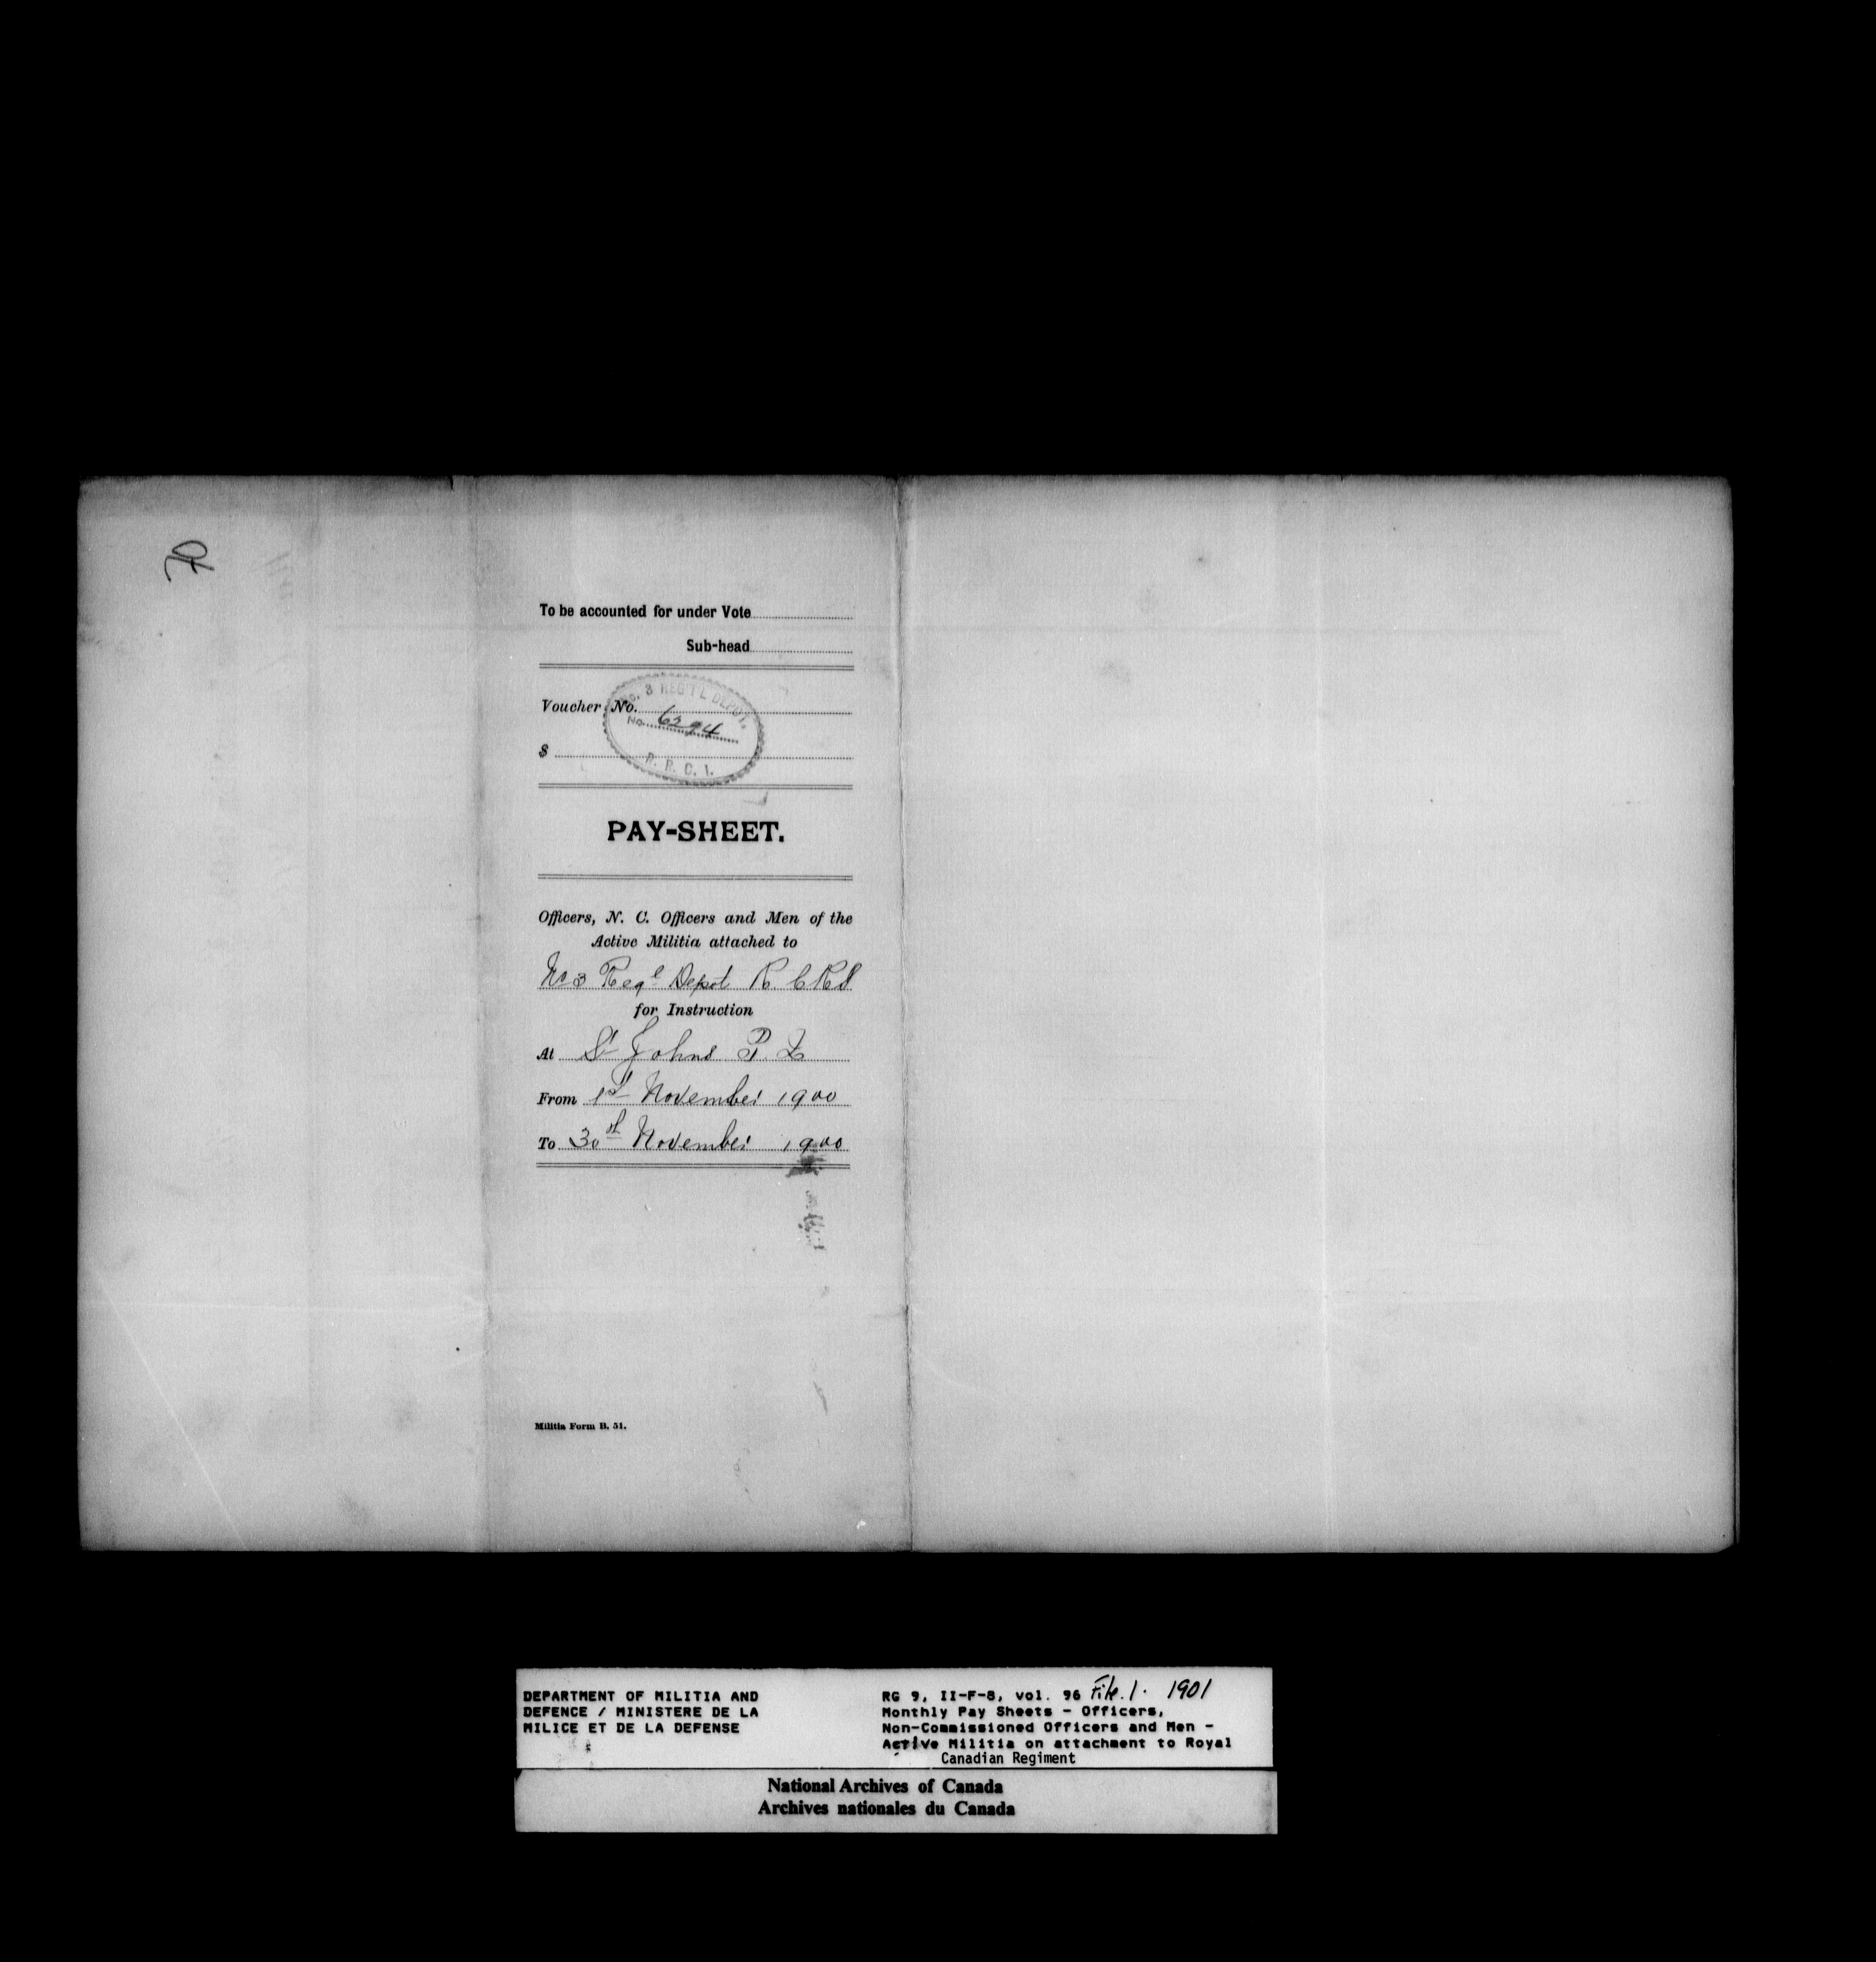 To be accounted for under Vote
Sub-head
No. 3 REG'T'L DEPOT.
Voucher No.
No. 6294
$
R. R. C. I.
PAY-SHEET.
Officers, N. C. Officers and Men of the
Active Militia attached to
No 3 Regl Depot R C R I
for Instruction
At St Johns P. Q
From 1st November 1900
To 30th November 1900
Militia Form B. 51.
DEPARTMENT OF MILITIA AND
DEFENCE / MINISTERE DE LA
MILICE ET DE LA DEFENSE
RG 9, II-F-8, vol. 96 File. 1. 1901
Monthly Pay Sheets - Officers,
Non-Commissioned Officers and Men -
Active Militia on attachment to Royal
Canadian Regiment
National Archives of Canada
Archives nationales du Canada